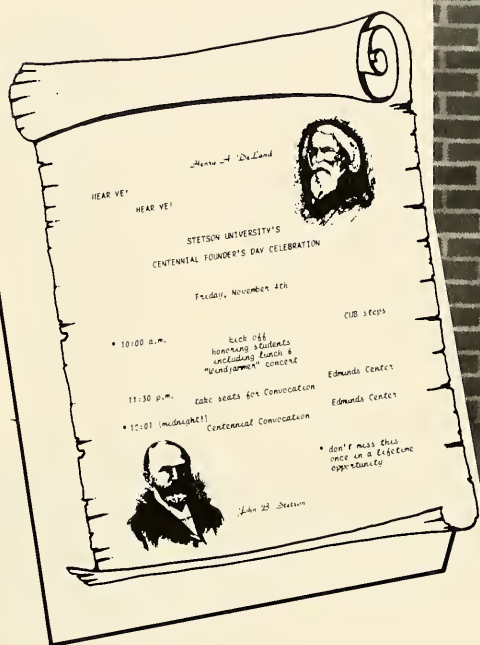 Henry A. DeLand
HEAR YE!
HEAR YE!
STETSON UNIVERSITY'S
CENTENNIAL FOUNDER'S DAY CELEBRATION
Friday, November 4th
CUB steps
• 10:00 a.m. kick off
honoring students
including lunch &
"Windjammer" concert
11:30 p.m. take seats for Convocation Edmunds Center
• 12:01 (midnight!) Centennial Convocation Edmunds Center
• don't miss this
once in a lifetime
opportunity
John B Stetson